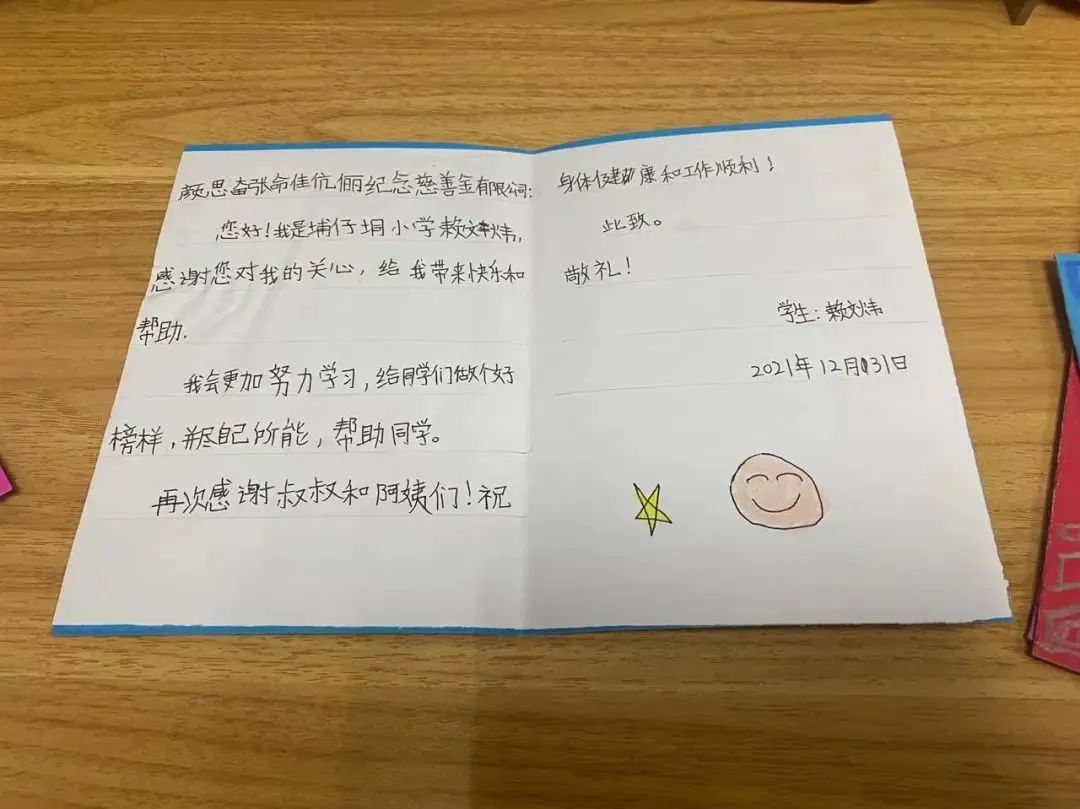 颜思奋张命佳伉俪纪念慈善金有限公司:
您好!我是埔仔垌小学赖文炜,
感谢您对我的关心,给我带来快乐和
帮助.
我会更加努力学习,给同学们做个好
榜样,并尽自己所能,帮助同学。
再次感谢叔叔和阿姨们!祝
身体健康和工作顺利!
此致。
敬礼!
学生:赖文炜
2021年12月31日